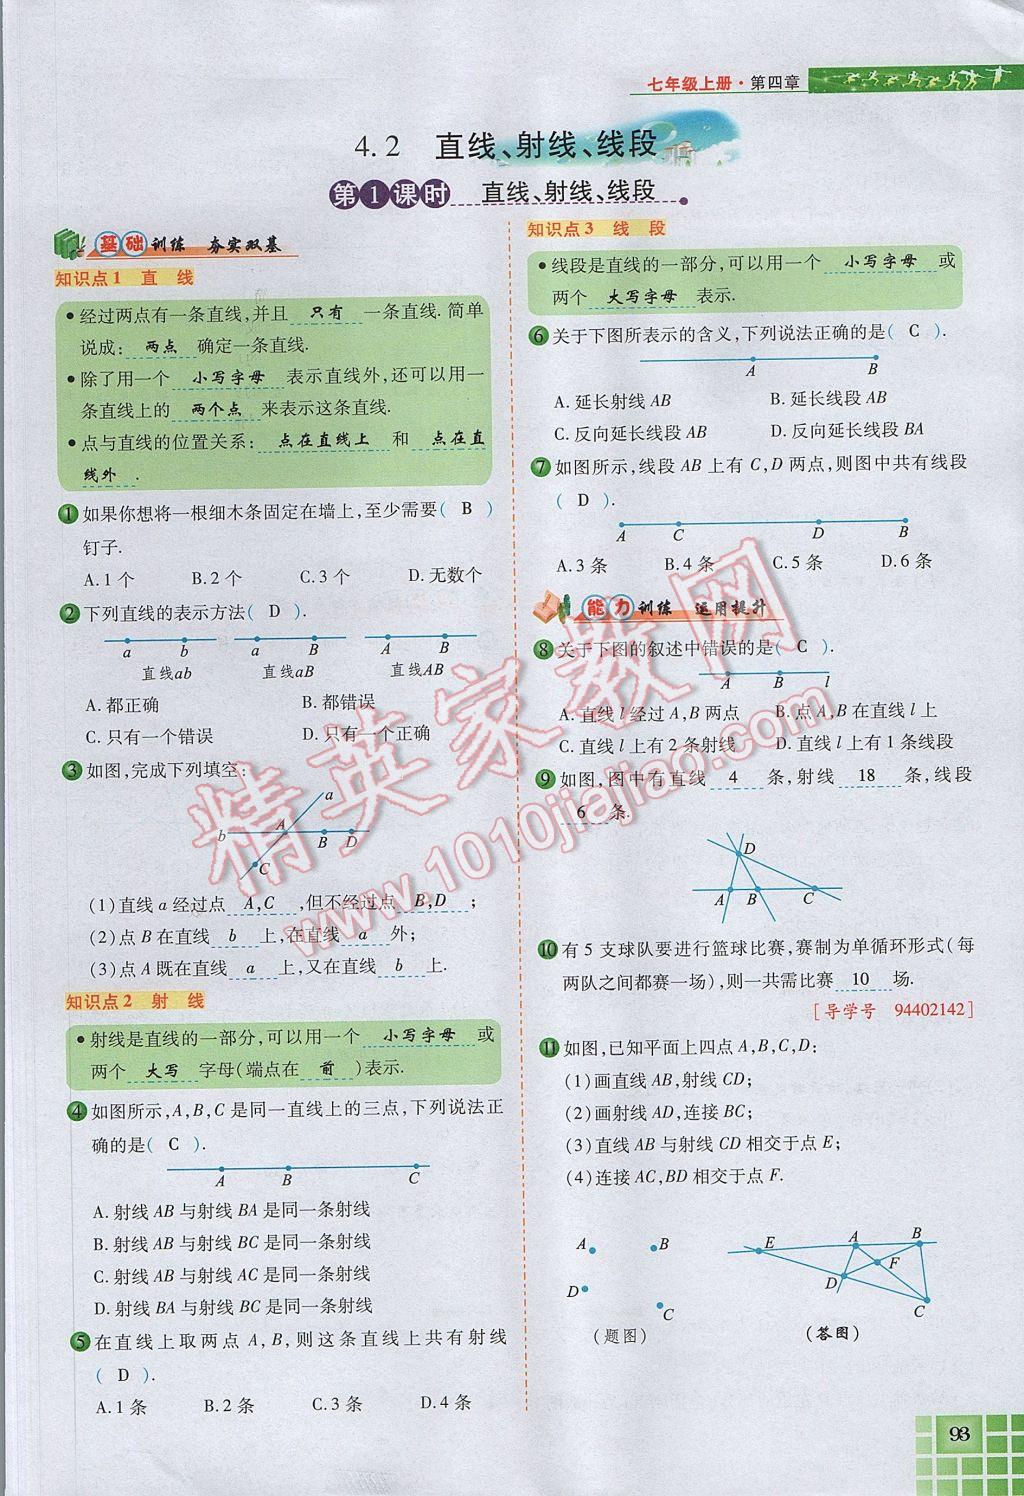 七年级上册·第四章
4.2 直线、射线、线段
第1课时 直线、射线、线段
基础训练 夯实双基
知识点1 直 线
•经过两点有一条直线,并且 只有 一条直线.简单
说成: 两点 确定一条直线.
•除了用一个 小写字母 表示直线外,还可以用一
条直线上的 两个点 来表示这条直线.
•点与直线的位置关系: 点在直线上 和 点在直
线外 .
1 如果你想将一根细木条固定在墙上,至少需要( B )
钉子.
A.1个 B.2个 C.3个 D.无数个
2 下列直线的表示方法( D ).
a b a B A B
直线ab 直线aB 直线AB
A.都正确 B.都错误
C.只有一个错误 D.只有一个正确
3 如图,完成下列填空:
a
b A B D
C
(1)直线a经过点 A,C ,但不经过点 B,D ;
(2)点B在直线 b 上,在直线 a 外;
(3)点A既在直线 a 上,又在直线 b 上.
知识点2 射 线
•射线是直线的一部分,可以用一个 小写字母 或
两个 大写 字母(端点在 前 )表示.
4 如图所示,A,B,C是同一直线上的三点,下列说法正
确的是( C ).
A B C
A.射线AB与射线BA是同一条射线
B.射线AB与射线BC是同一条射线
C.射线AB与射线AC是同一条射线
D.射线BA与射线BC是同一条射线
5 在直线上取两点A,B,则这条直线上共有射线
( D ).
A.1条 B.2条 C.3条 D.4条
知识点3 线 段
•线段是直线的一部分,可以用一个 小写字母 或
两个 大写字母 表示.
6 关于下图所表示的含义,下列说法正确的是( C ).
A B
A.延长射线AB B.延长线段AB
C.反向延长线段AB D.反向延长线段BA
7 如图所示,线段AB上有C,D两点,则图中共有线段
( D ).
A C D B
A.3条 B.4条 C.5条 D.6条
能力训练 运用提升
8 关于下图的叙述中错误的是( C ).
A B l
A.直线l经过A,B两点 B.点A,B在直线l上
C.直线l上有2条射线 D.直线l上有1条线段
9 如图,图中有直线 4 条,射线 18 条,线段
6 条.
D
A B C
10 有5支球队要进行篮球比赛,赛制为单循环形式(每
两队之间都赛一场),则一共需比赛 10 场.
[导学号 94402142]
11 如图,已知平面上四点A,B,C,D:
(1)画直线AB,射线CD;
(2)画射线AD,连接BC;
(3)直线AB与射线CD相交于点E;
(4)连接AC,BD相交于点F.
A B
D
C
(题图)
E A B
F
D
C
(答图)
精英家教网
www.1010jiajiao.com
93